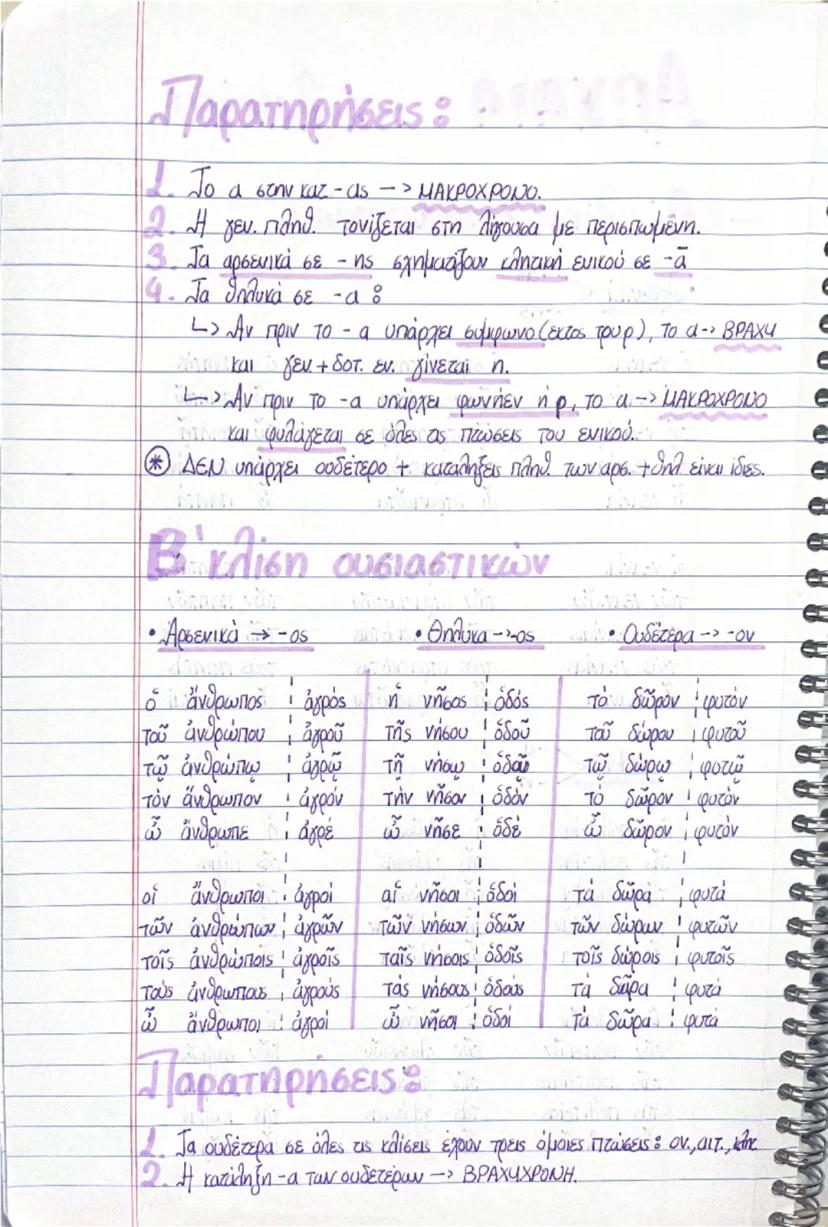 Παρατηρήσεις:
1. Το α στην κατ -ας —> ΜΑΚΡΟΧΡΟΝΟ.
2. Η γεν. πληθ. τονίζεται στη λήγουσα με περισπωμένη.
3. Τα αρσενικά σε -ης σχηματίζουν κλητική ενικού σε -ᾱ
4. Τα θηλυκά σε -α:
↳ Αν πριν το -α υπάρχει σύμφωνο (εκτός του ρ), το α -> ΒΡΑΧΥ
και γεν. + δοτ. εν. γίνεται η.
↳ Αν πριν το -α υπάρχει φωνήεν ή ρ, το α -> ΜΑΚΡΟΧΡΟΝΟ
και φυλάγεται σε όλες τις πτώσεις του ενικού.
* ΔΕΝ υπάρχει ουδέτερο + καταλήξεις πληθ. των αρσ. + θηλ είναι ίδιες.
Β' κλίση ουσιαστικών
• Αρσενικά → -ος • Θηλυκά -> -ος • Ουδέτερα -> -ον
ὁ ἄνθρωπος ἀγρός ἡ νῆσος ὁδός τὸ δῶρον φυτόν
τοῦ ἀνθρώπου ἀγροῦ τῆς νήσου ὁδοῦ τοῦ δώρου φυτοῦ
τῷ ἀνθρώπῳ ἀγρῷ τῇ νήσῳ ὁδῷ τῷ δώρῳ φυτῷ
τὸν ἄνθρωπον ἀγρόν τὴν νῆσον ὁδόν τὸ δῶρον φυτόν
ὦ ἄνθρωπε ἀγρέ ὦ νῆσε ὁδέ ὦ δῶρον φυτόν
οἱ ἄνθρωποι ἀγροί αἱ νῆσοι ὁδοί τὰ δῶρα φυτά
τῶν ἀνθρώπων ἀγρῶν τῶν νήσων ὁδῶν τῶν δώρων φυτῶν
τοῖς ἀνθρώποις ἀγροῖς ταῖς νήσοις ὁδοῖς τοῖς δώροις φυτοῖς
τοὺς ἀνθρώπους ἀγρούς τὰς νήσους ὁδούς τὰ δῶρα φυτά
ὦ ἄνθρωποι ἀγροί ὦ νῆσοι ὁδοί τὰ δῶρα φυτά
Παρατηρήσεις:
1. Τα ουδέτερα σε όλες τις κλίσεις έχουν τρεις όμοιες πτώσεις: ον., αιτ., κλητ.
2. Η κατάληξη -α των ουδετέρων —> ΒΡΑΧΥΧΡΟΝΗ.